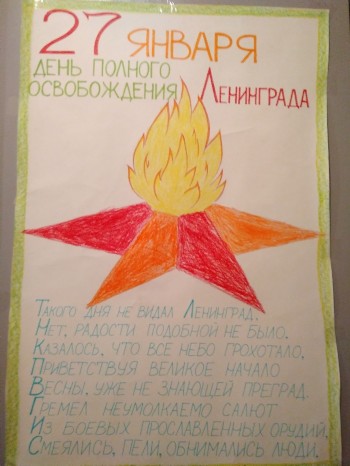 27 ЯНВАРЯ
ДЕНЬ ПОЛНОГО
ОСВОБОЖДЕНИЯ ЛЕНИНГРАДА
ТАКОГО ДНЯ НЕ ВИДАЛ ЛЕНИНГРАД.
НЕТ, РАДОСТИ ПОДОБНОЙ НЕ БЫЛО.
КАЗАЛОСЬ, ЧТО ВСЕ НЕБО ГРОХОТАЛО,
ПРИВЕТСТВУЯ ВЕЛИКОЕ НАЧАЛО
ВЕСНЫ, УЖЕ НЕ ЗНАЮЩЕЙ ПРЕГРАД.
ГРЕМЕЛ НЕУМОЛКАЕМО САЛЮТ
ИЗ БОЕВЫХ ПРОСЛАВЛЕННЫХ ОРУДИЙ,
СМЕЯЛИСЬ, ПЕЛИ, ОБНИМАЛИСЬ ЛЮДИ.